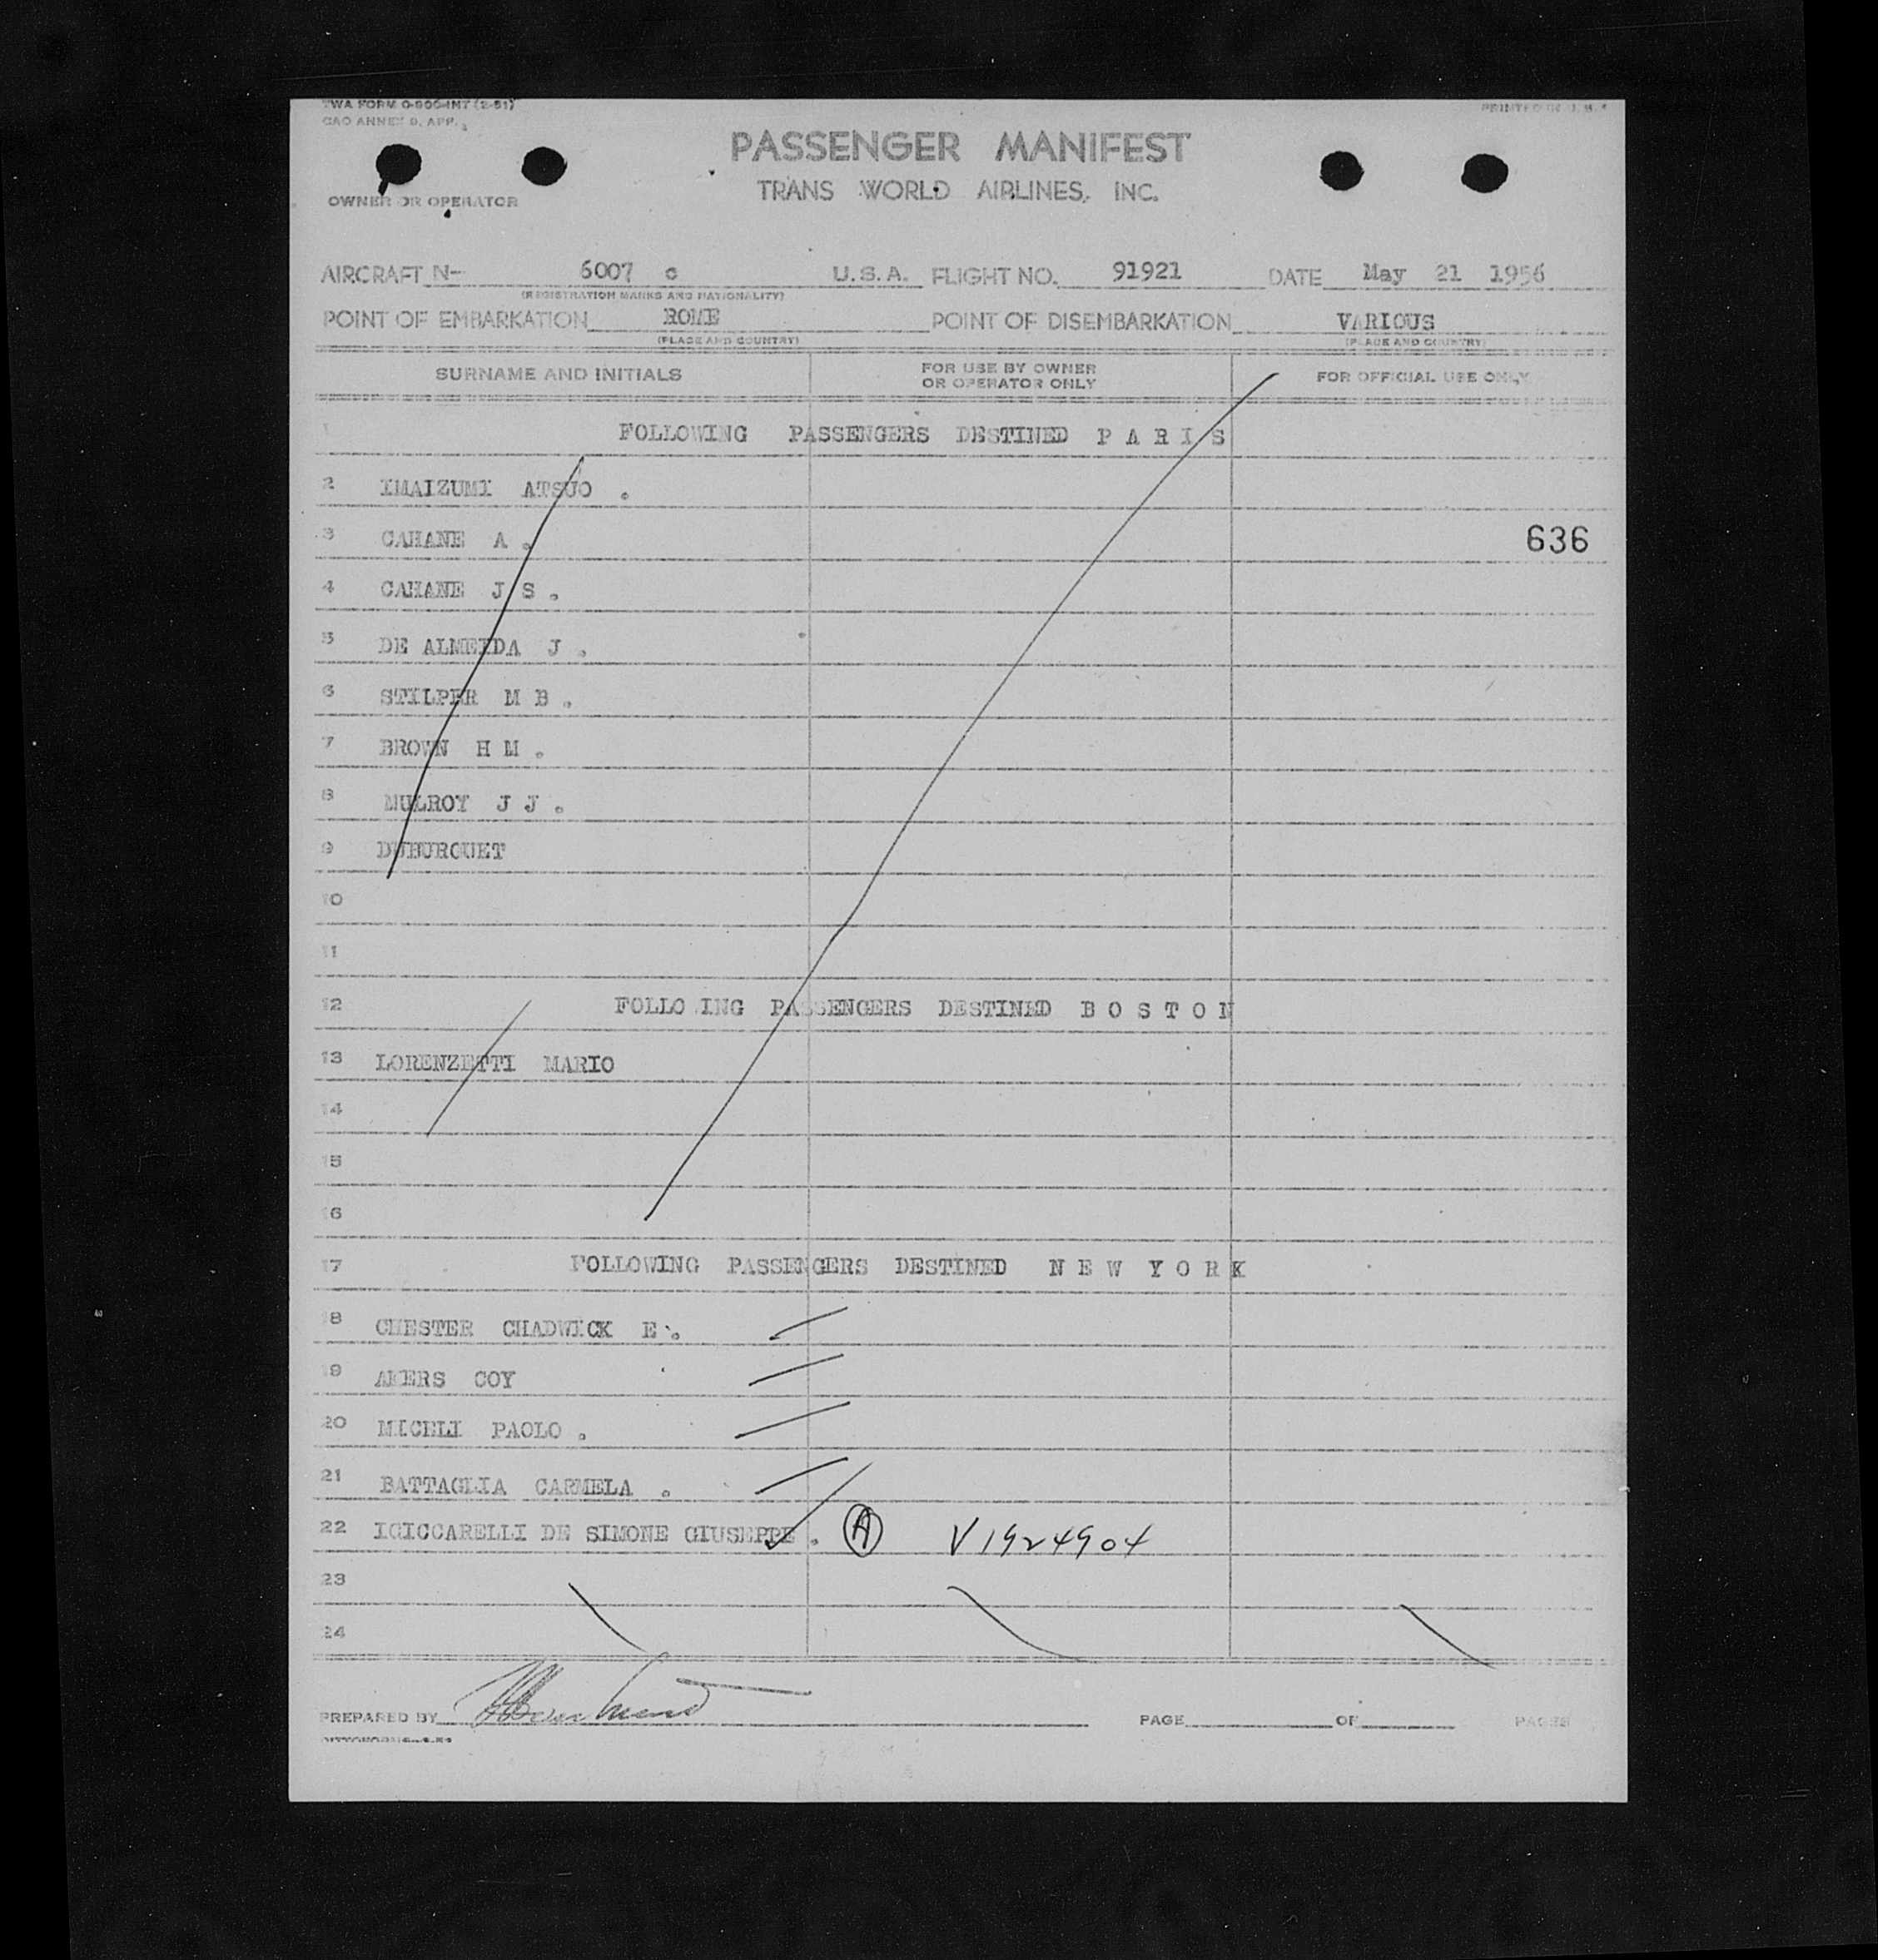 TWA FORM O-800-INT (2-51) PRINTED IN U. S. A.
CAO ANNEX 9, APP. 3
PASSENGER MANIFEST
TRANS WORLD AIRLINES, INC.
OWNER OR OPERATOR
AIRCRAFT N- 6007 c U.S.A. FLIGHT NO. 91921 DATE May 21 1956
(REGISTRATION MARKS AND NATIONALITY)
POINT OF EMBARKATION ROME POINT OF DISEMBARKATION VARIOUS
(PLACE AND COUNTRY) (PLACE AND COUNTRY)
SURNAME AND INITIALS FOR USE BY OWNER OR OPERATOR ONLY FOR OFFICIAL USE ONLY
1 FOLLOWING PASSENGERS DESTINED P A R I S
2 IMAIZUMI ATSUO .
3 CAHANE A . 636
4 CAHANE J S .
5 DE ALMEIDA J .
6 STILPER M B .
7 BROWN H M .
8 MULROY J J .
9 DUBURQUET
10
11
12 FOLLO ING PASSENGERS DESTINED B O S T O N
13 LORENZETTI MARIO
14
15
16
17 FOLLOWING PASSENGERS DESTINED N E W Y O R K
18 CHESTER CHADWICK E .
19 AKERS COY
20 MICELI PAOLO .
21 BATTAGLIA CARMELA .
22 ICICCARELLI DE SIMONE GIUSEPPE . A V1924904
23
24
PREPARED BY PAGE OF PAGES